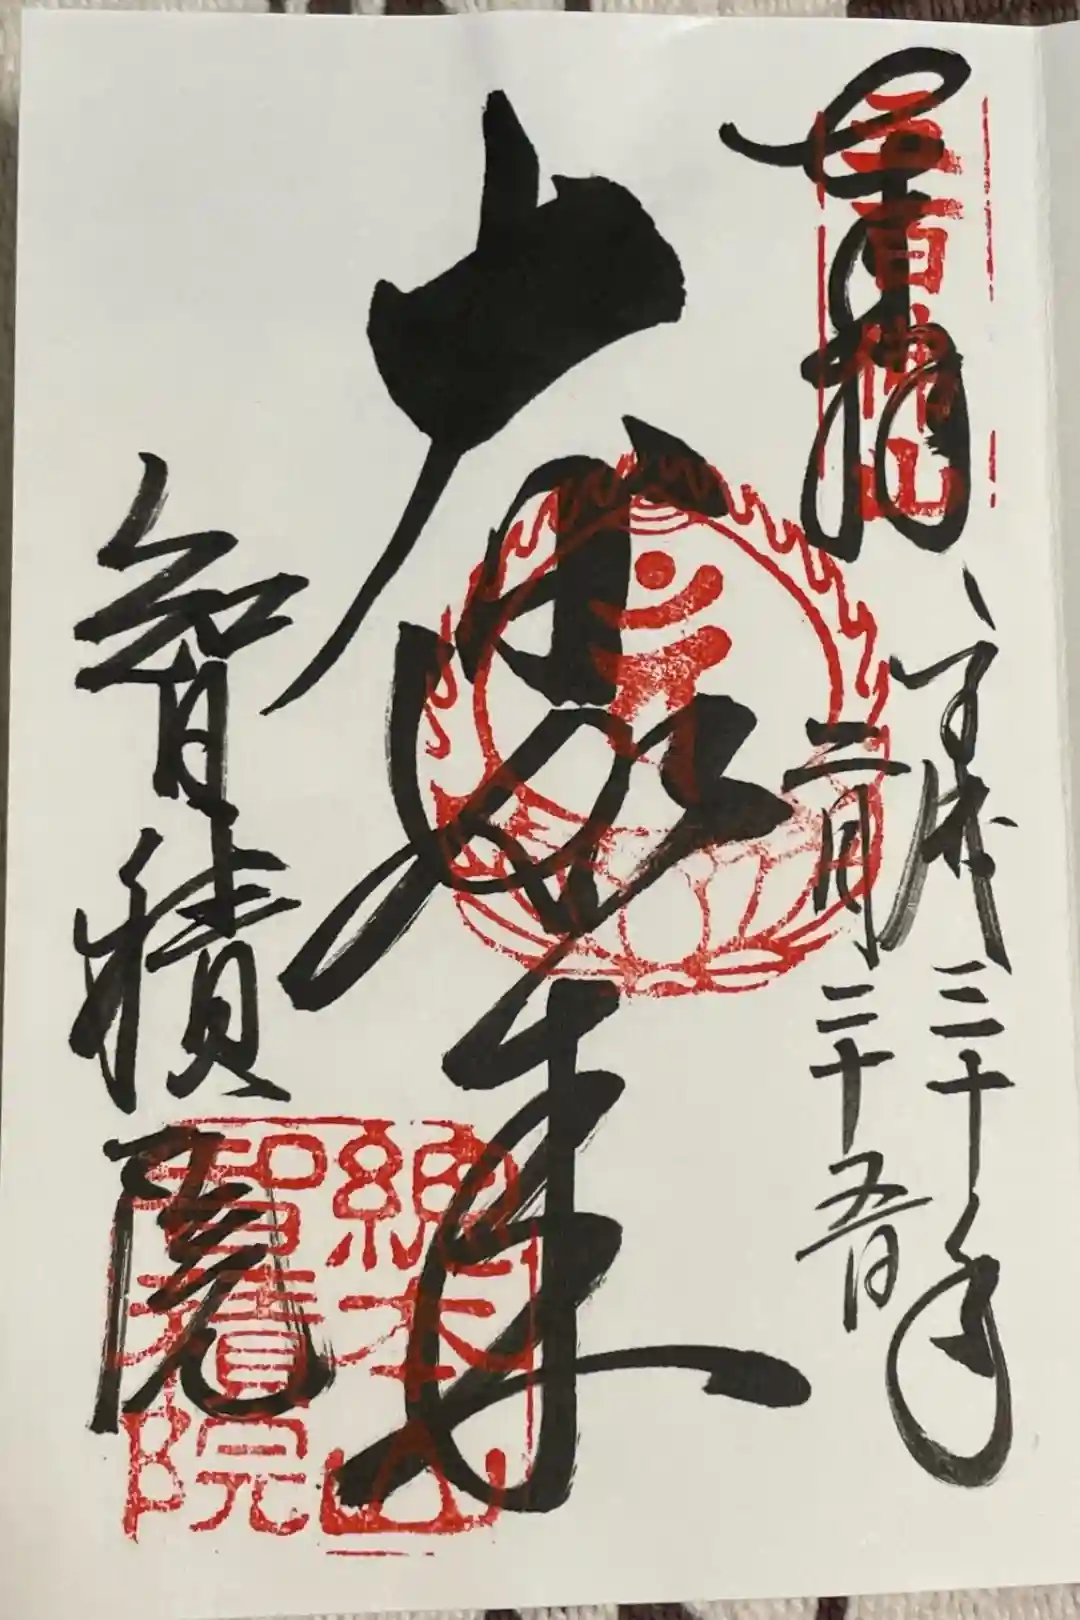 奉拝
五百佛山
平成三十年
二月二十五日
大日如来
智積院
總本山
智積院